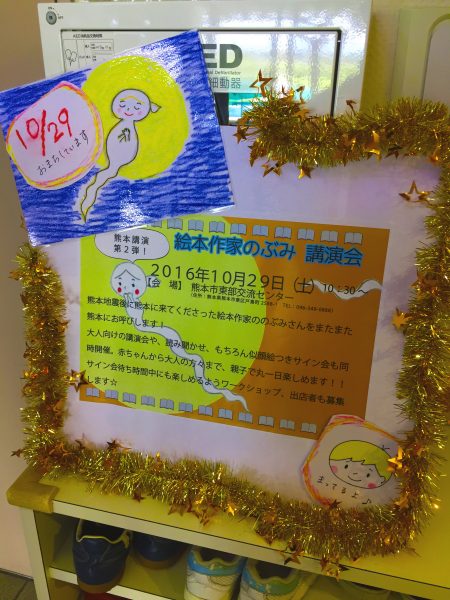 AED
10/29
おまちしています
熊本講演
第2弾！
絵本作家のぶみ 講演会
2016年10月29日（土）10：30～
【会　場】 熊本市東部交流センター
熊本地震後に熊本に来てくださった絵本作家ののぶみさんをまたまた
熊本にお呼びします！
大人向けの講演会や、読み聞かせ、もちろん似顔絵つきサイン会も同
時開催。赤ちゃんから大人の方々まで、親子で丸一日楽しめます！！
サイン会待ち時間中にも楽しめるようワークショップ、出店者も募集
します☆
まってるよ♪